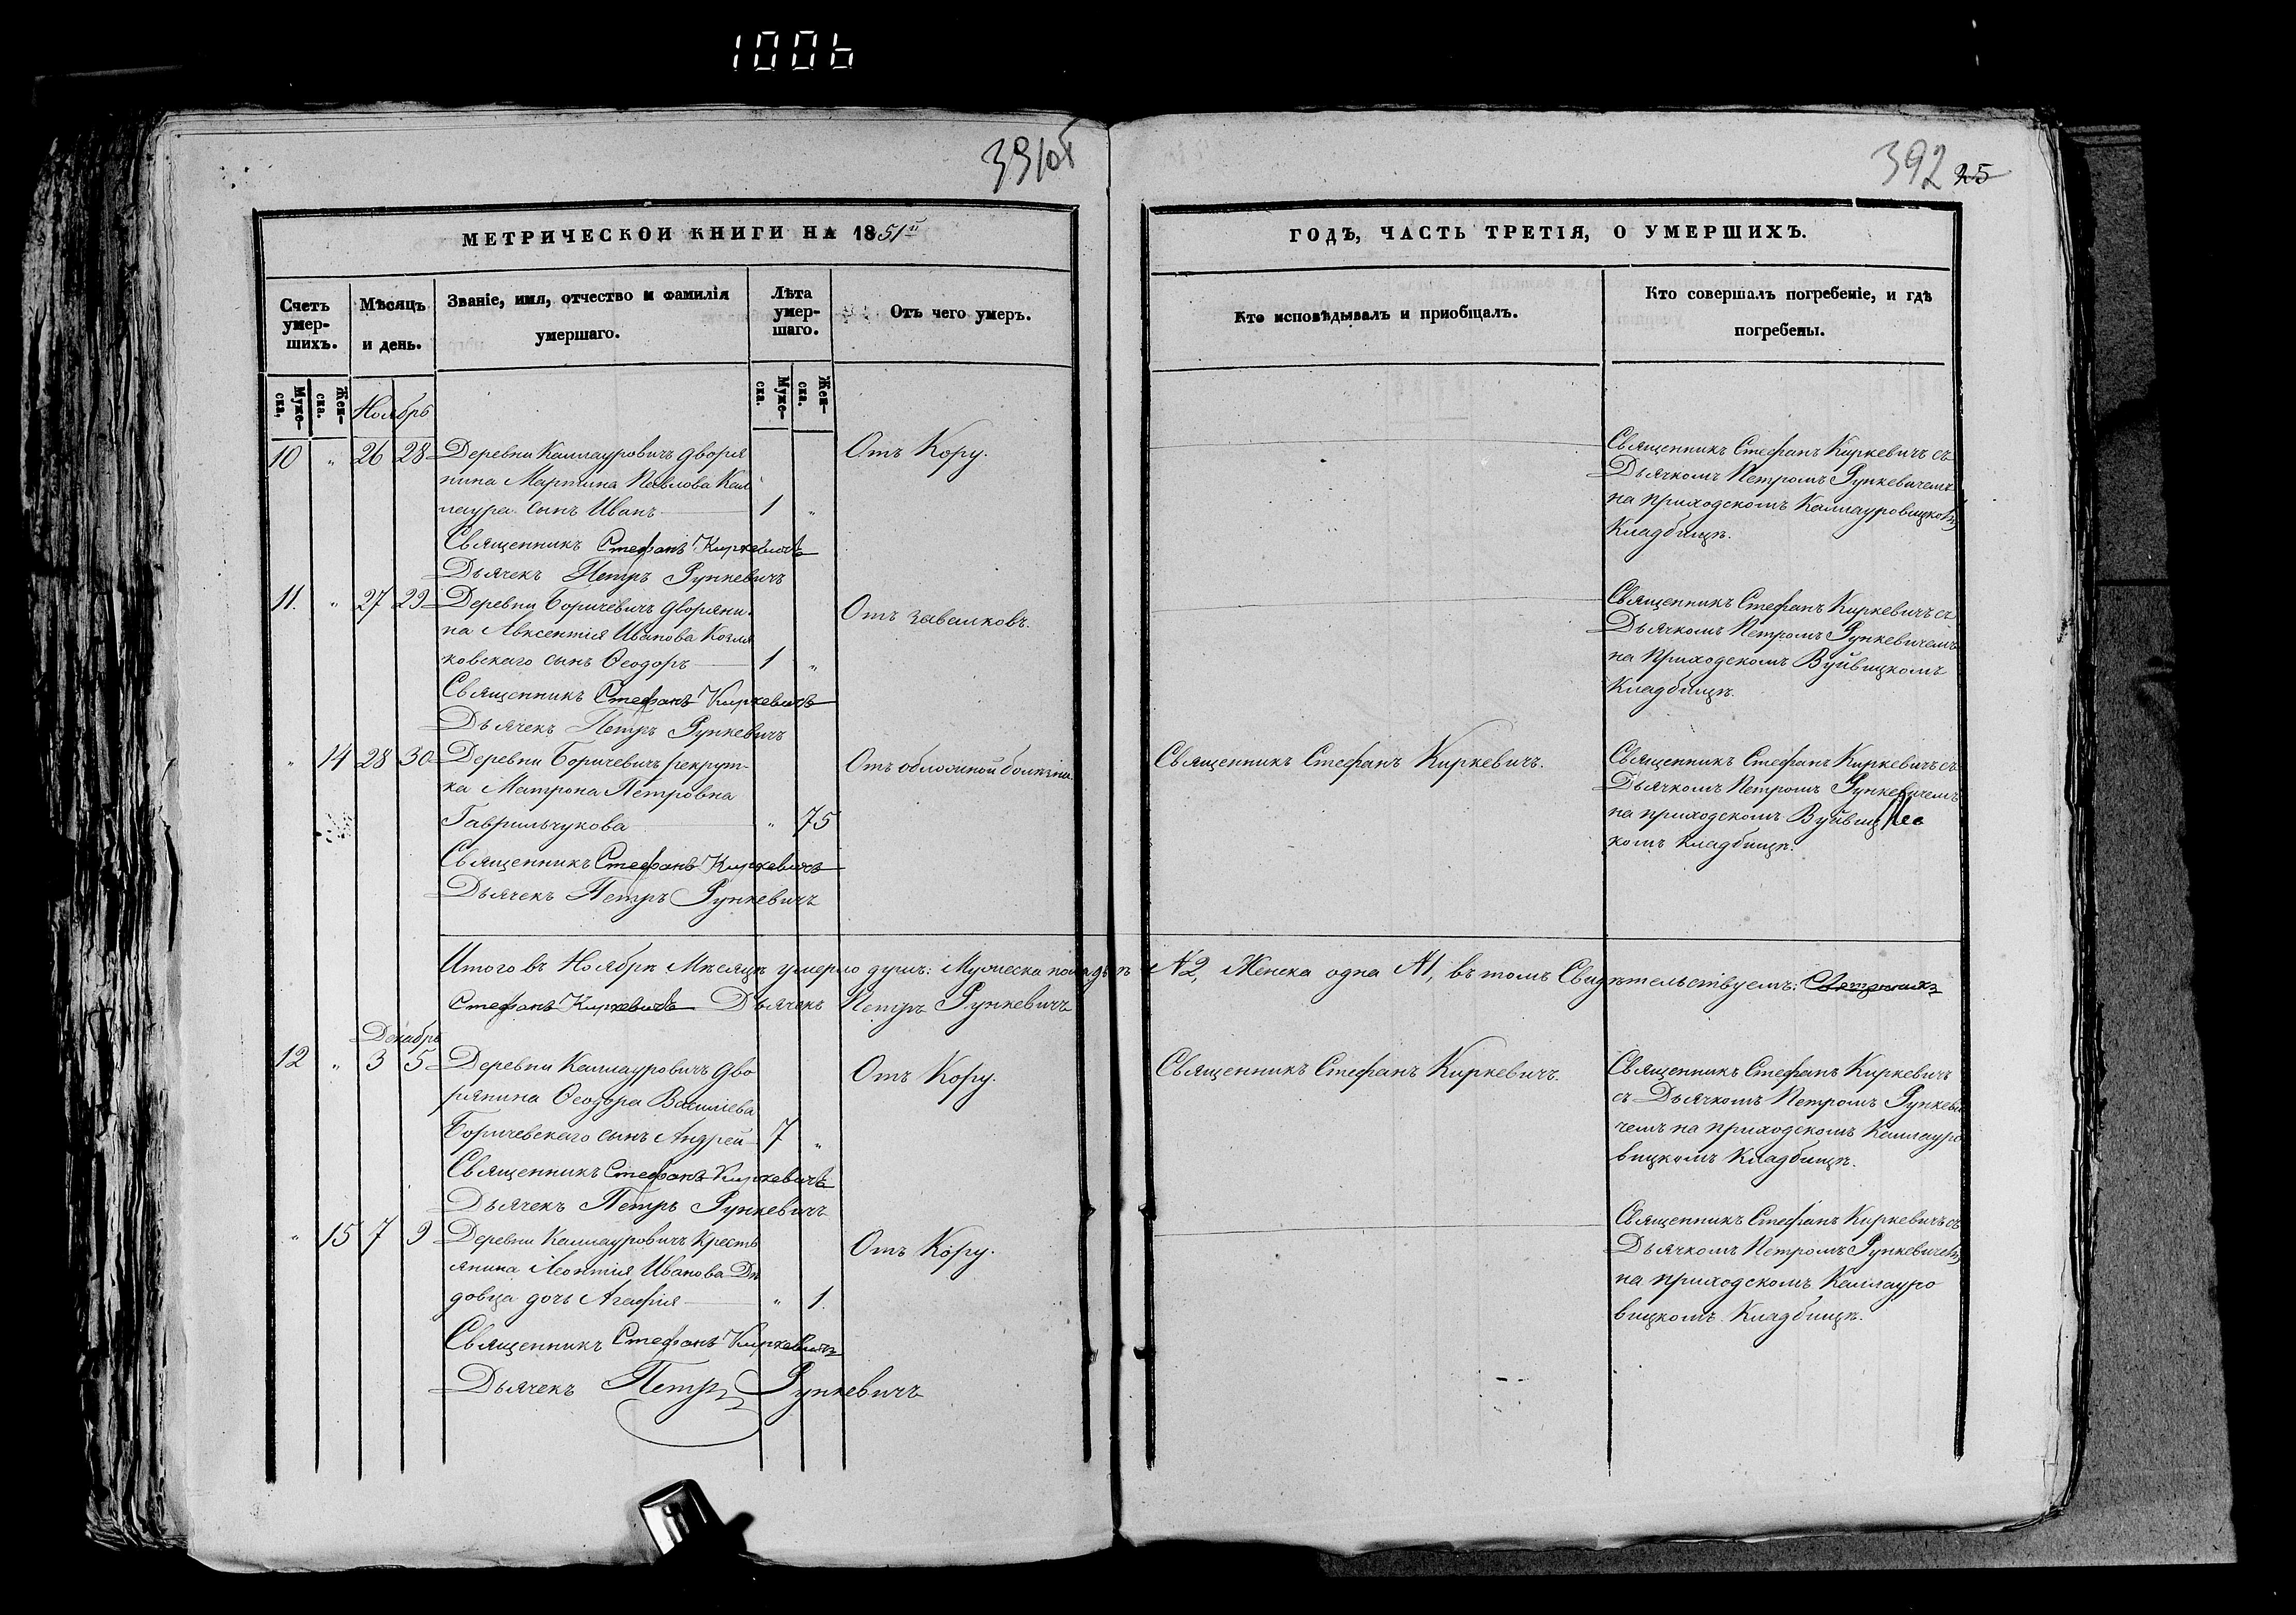 1006
391об
392 25
МЕТРИЧЕСКОЙ КНИГИ НА 1851й
ГОДЪ, ЧАСТЬ ТРЕТІЯ, О УМЕРШИХЪ.
Счетъ умер-шихъ.
Мѣсяцъ и день.
Званіе, имя, отчество и фамилія умершаго.
Лѣта умер-шаго.
Отъ чего умеръ.
Кто исповѣдывалъ и пріобщалъ.
Кто совершалъ погребеніе, и гдѣ погребены.
Муже-ска,
Жен-ска.
Муже-ска.
Жен-ска.
Ноябрь
10 „ 26 28
Деревни Каллауровичъ дворя
нина Мартина Павлова Кал
лаура сынъ Иванъ 1 „
Священникъ Стефанъ Киркевичъ
Дьячекъ Петръ Рункевичъ
Отъ Кору.
Священникъ Стефанъ Киркевичъ съ
Дьячкомъ Петромъ Рункевичемъ
на приходскомъ Каллауровицкомъ
Кладбищѣ.
11. „ 27 29
Деревни Боричевичъ дворяни-
на Авксентія Иванова Козля
ковскаго сынъ Ѳеодоръ 1 „
Священникъ Стефанъ Киркевичъ
Дьячекъ Петръ Рункевичъ
Отъ завалковъ.
Священникъ Стефанъ Киркевичъ съ
Дьячкомъ Петромъ Рункевичемъ
на приходскомъ Вуйвицкомъ
Кладбищѣ.
„ 14 28 30
Деревни Боричевичъ рекрут-
ка Матрона Петровна
Гаврильчукова „ 75
Священникъ Стефанъ Киркевичъ
Дьячекъ Петръ Рункевичъ
Отъ обложной болѣзни
Священникъ Стефанъ Киркевичъ.
Священникъ Стефанъ Киркевичъ съ
Дьячкомъ Петромъ Рункевичемъ
на приходскомъ Вуйвиц
комъ кладбищѣ.
Итого въ Ноябрѣ Мѣсяцѣ умерло душъ: Мужеска пола двѣ №2, Женска одна №1, въ томъ Свидѣтельствуемъ: Священникъ
Стефанъ Киркевичъ Дьячекъ Петръ Рункевичъ
Декабрь
12 „ 3 5
Деревни Каллауровичъ дво
рянина Ѳеодора Василіева
Боричевскаго сынъ Андрей 7 „
Священникъ Стефанъ Киркевичъ
Дьячекъ Петръ Рункевичъ
Отъ Кору.
Священникъ Стефанъ Киркевичъ.
Священникъ Стефанъ Киркевичъ
съ Дьячкомъ Петромъ Рункеви
чемъ на приходскомъ Каллауро
вицкомъ Кладбищѣ.
„ 15 7 9
Деревни Каллауровичъ Кресть
янина Леонтія Иванова Дѣ
довца дочь Агафія „ 1.
Священникъ Стефанъ Киркевичъ
Дьячекъ Петръ Рункевичъ
Отъ Кору.
Священникъ Стефанъ Киркевичъ съ
Дьячкомъ Петромъ Рункевичемъ
на приходскомъ Каллауро
вицкомъ Кладбищѣ.